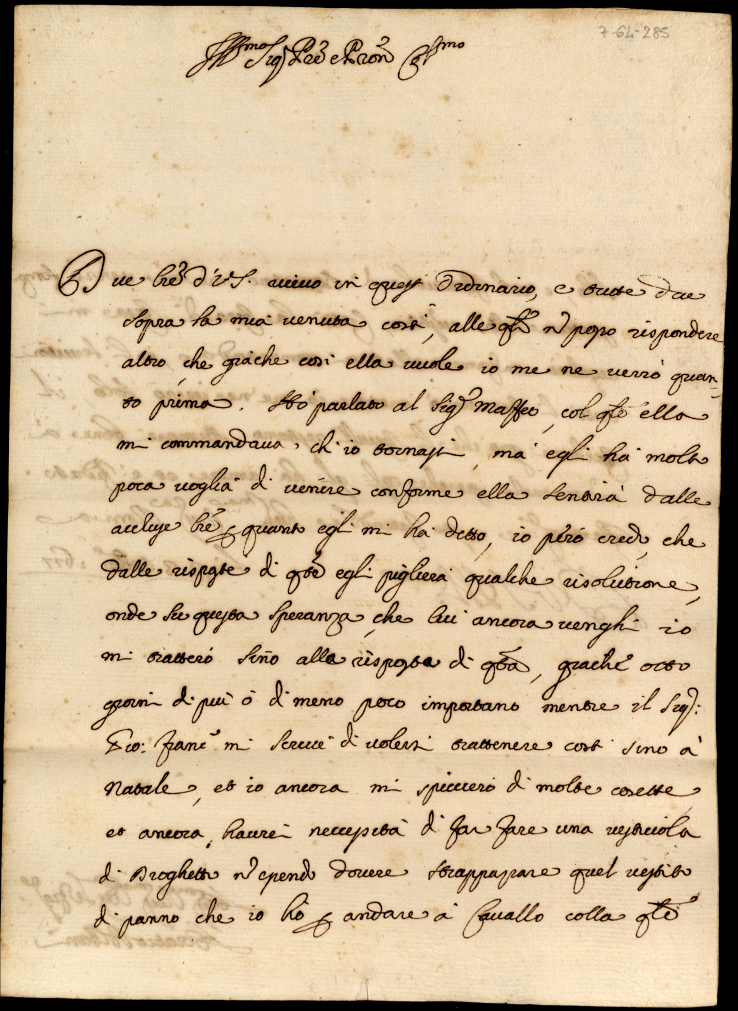 7-64-285
Ill.mo Sig.r Pre e Pron Col.mo
Due lre d'V.S. ricevo in quest Ordinario, e tutte due
sopra la mia venuta costì, alle qle nõ posso rispondere
altro, che giache così ella vuole io me ne verrò quan-
to prima. Hò parlato al Sig.r Maffeo, col qle ella
mi commandava, ch'io tornassi, mà egli hà molta
poca voglia di venire conforme ella sentirà dalle
accluse lre, e p quanto egli mi hà detto, io però credo, che
dalle risposte di qste egli piglierà qualche risolutione,
onde sù questa speranza, che lui ancora venghi io
mi tratterò sino alla risposta di qsta, giache otto
giorni di più ò di meno poco importano mentre il Sig.r:
Fco: Franc.o mi scrive di volersi trattenere costì sino à
Natale, et io ancora mi spiccierò di molte cosette,
et ancora, haurei necessità di far fare una vesticiola
di Droghetto nõ essendo dovere strappazzare quel vestito
di panno che io hò p andare à Cavallo colla qle